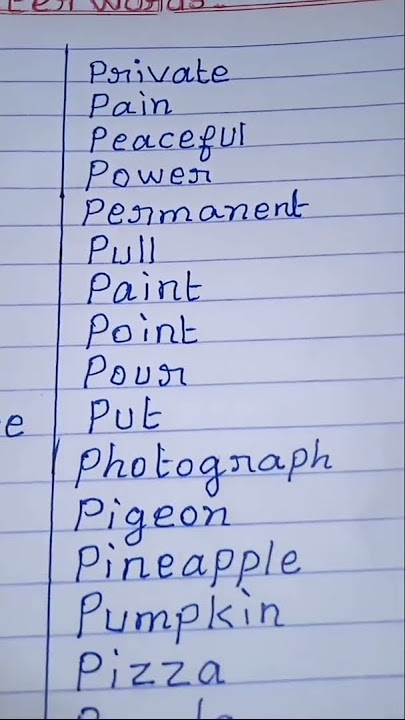 Private
Pain
Peaceful
Power
Permanent
Pull
Paint
Point
Pour
e
Put
Photograph
Pigeon
Pineapple
Pumpkin
Pizza